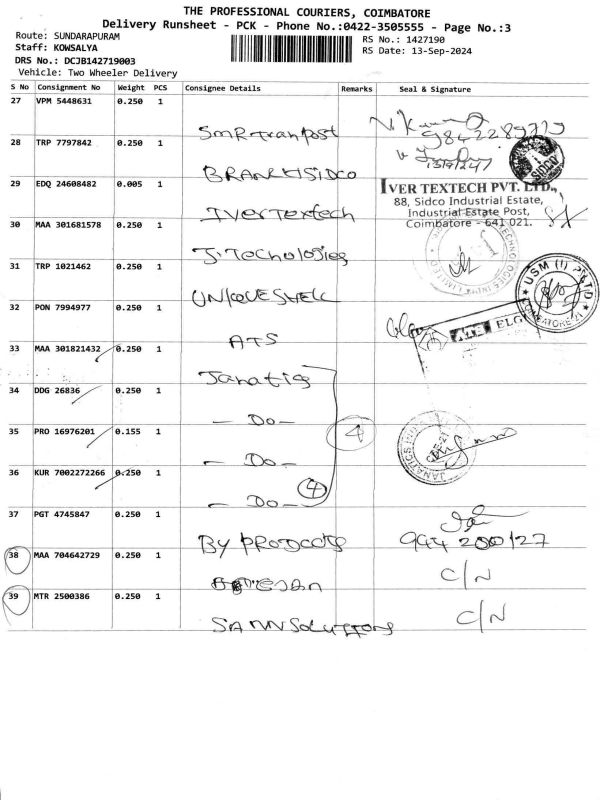 THE PROFESSIONAL COURIERS, COIMBATORE
Delivery Runsheet - PCK - Phone No.:0422-3505555 - Page No.:3
Route: SUNDARAPURAM
RS No.: 1427190
Staff: KOWSALYA
RS Date: 13-Sep-2024
DRS No.: DCJB142719003
Vehicle: Two Wheeler Delivery
S No Consignment No Weight PCS Consignee Details Remarks Seal & Signature
27 VPM 5448631 0.250 1
SMR Tranpost
28 TRP 7797842 0.250 1
SIDCO
29 EDQ 24608482 0.005 1
IVER TEXTECH PVT. LTD.,
88, Sidco Industrial Estate,
Industrial Estate Post,
Coimbatore - 641 021.
IverTextech
30 MAA 301681578 0.250 1
J. Technologies
31 TRP 1021462 0.250 1
USM (I) P LTD
COIMBATORE-21
UNIQUE SHELL
32 PON 7994977 0.250 1
ATS
33 MAA 301821432 0.250 1
Janatics
34 DDG 26836 0.250 1
- Do -
35 PRO 16976201 0.155 1
4
- Do -
36 KUR 7002272266 0.250 1
4
- Do -
37 PGT 4745847 0.250 1
By PRODUCTS
944 200127
38 MAA 704642729 0.250 1
C/N
39 MTR 2500386 0.250 1
C/N
SANN Solutions